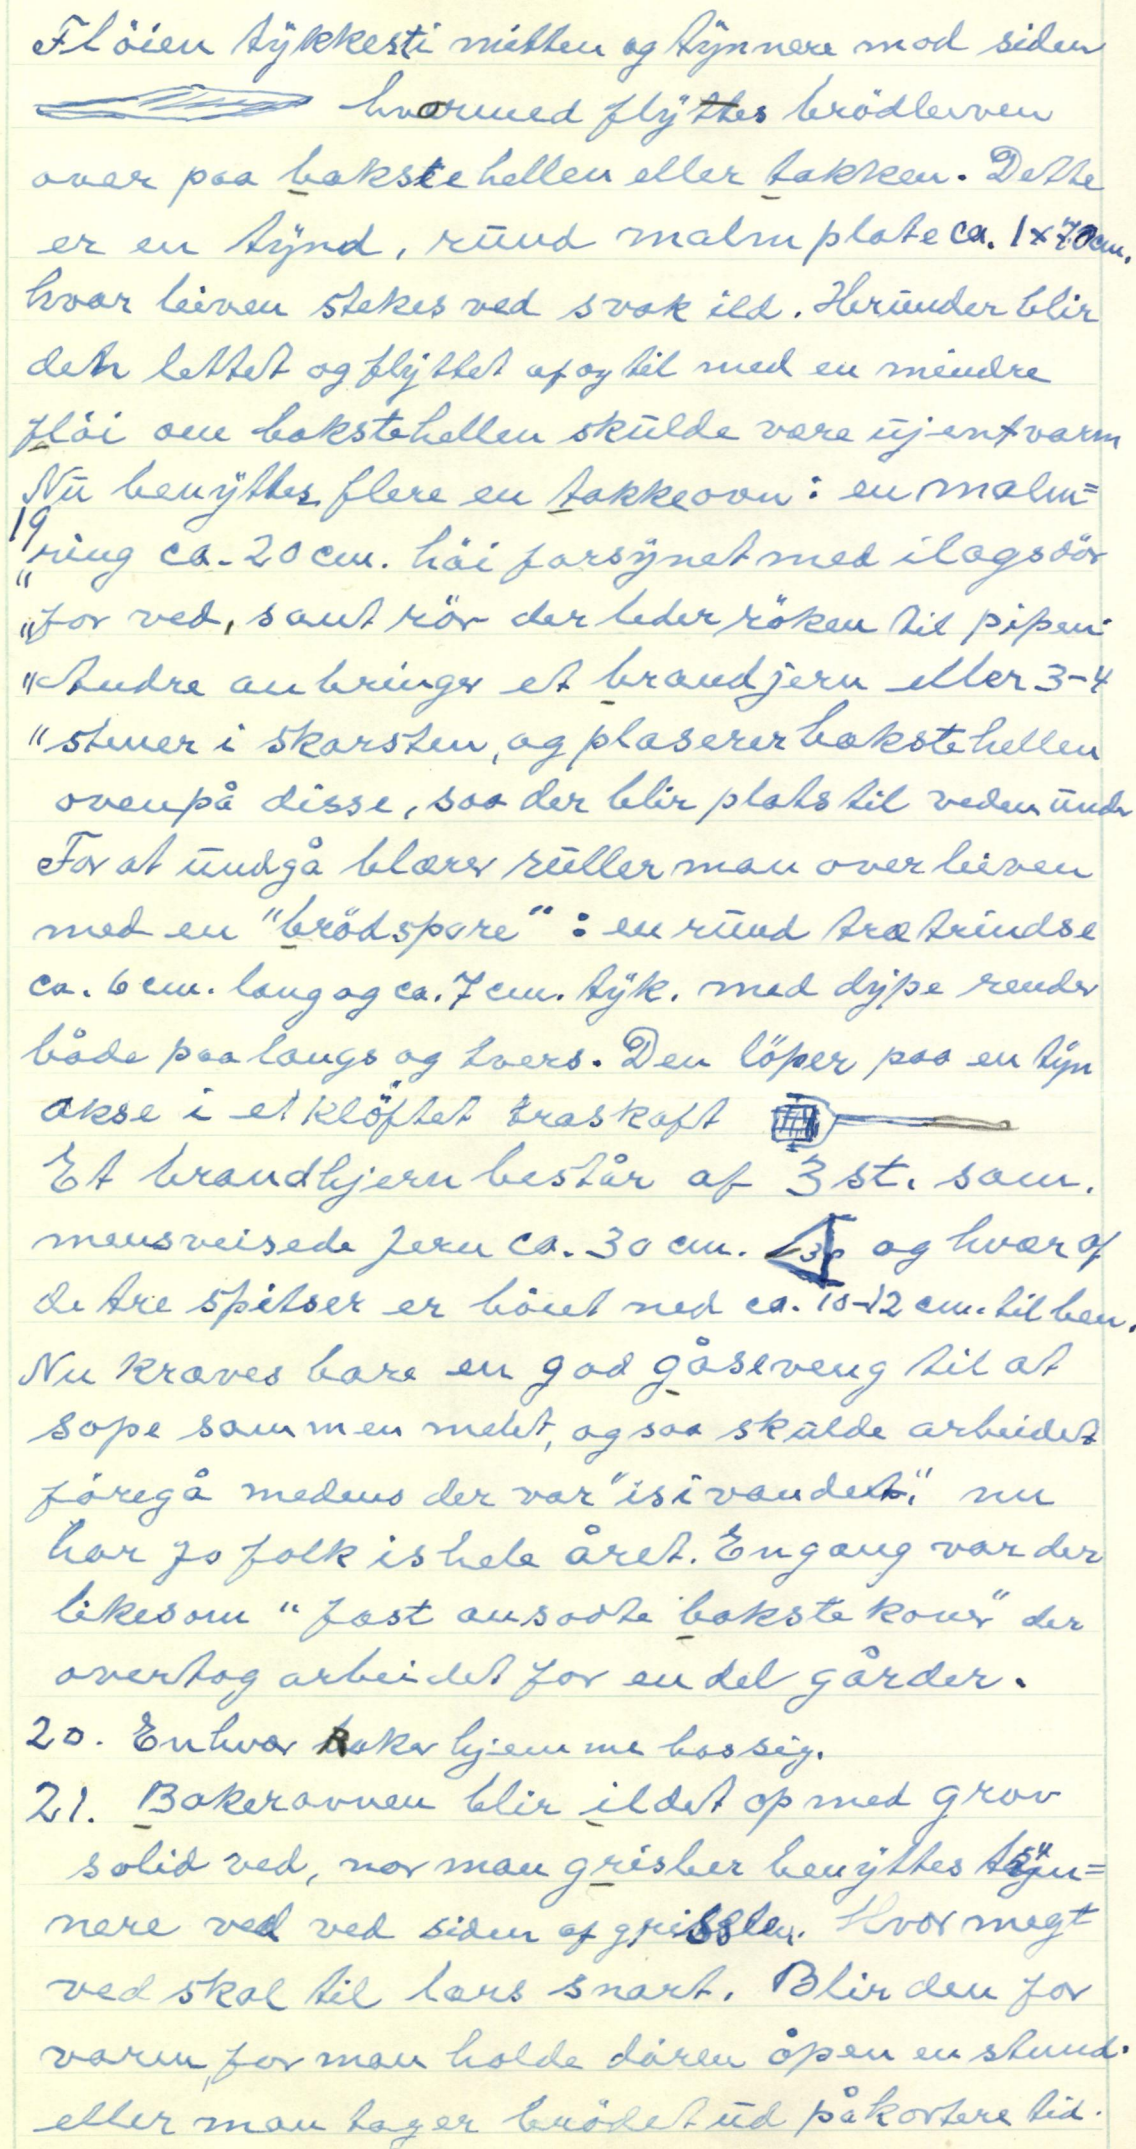 Flöien tykkest i mitten og tynnere mod siden
hvormed flyttes brödleiven
over paa bakstehellen eller takken. Dette
er en tynd, rund malmplate ca. 1 x 70 cm.
hvor leiven stekes ved svak ild. Herunder blir
den lettet og flyttet af og til med en mindre
flöi om bakstehellen skulde være ujent varm
Nu benyttes flere en takkeovn: en malm=
19
"ring ca. 20 cm. höi forsynet med ilagsdör
"for ved, samt rör der leder röken til pipen.
"Andre anbringer et brandjern eller 3-4
"stener i skorsten, og plaserer bakstehellen
ovenpå disse, saa der blir plats til veden under
For at undgå blærer ruller man over leiven
med en "brödspore": en rund trætrindse
ca. 6 cm. lang og ca. 7 cm. tyk. med dype render
både paa langs og tvers. Den löper paa en tyn
akse i et klöftet træskaft
Et brandhjern består af 3 st. sam.
mensveisede jern ca. 30 cm. 30 og hver af
de tre spitser er böiet ned ca. 10-12 cm. til ben.
Nu kræves bare en god gåseveng til at
sope sammen melet, og saa skulde arbeidet
föregå medens der var "is i vandet", nu
har jo folk is hele året. Engang var der
likesom "fast ansadte bakstekoner" der
overtog arbeidet for en del gårder.
20. Enhver baker hjemme hos sig.
21. Bakerovnen blir ildet op med grov
solid ved, nor man grisler benyttes tyn=
nere ved ved siden af grisslen. Hvor megt
ved skal til læres snart. Blir den for
varm, for man holde dören åpen en stund.
eller man tager brödet ud på kortere tid.